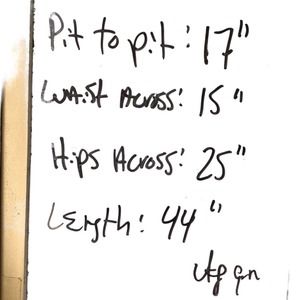 Pit to pit: 17"
Waist Across: 15"
Hips Across: 25"
Length: 44"